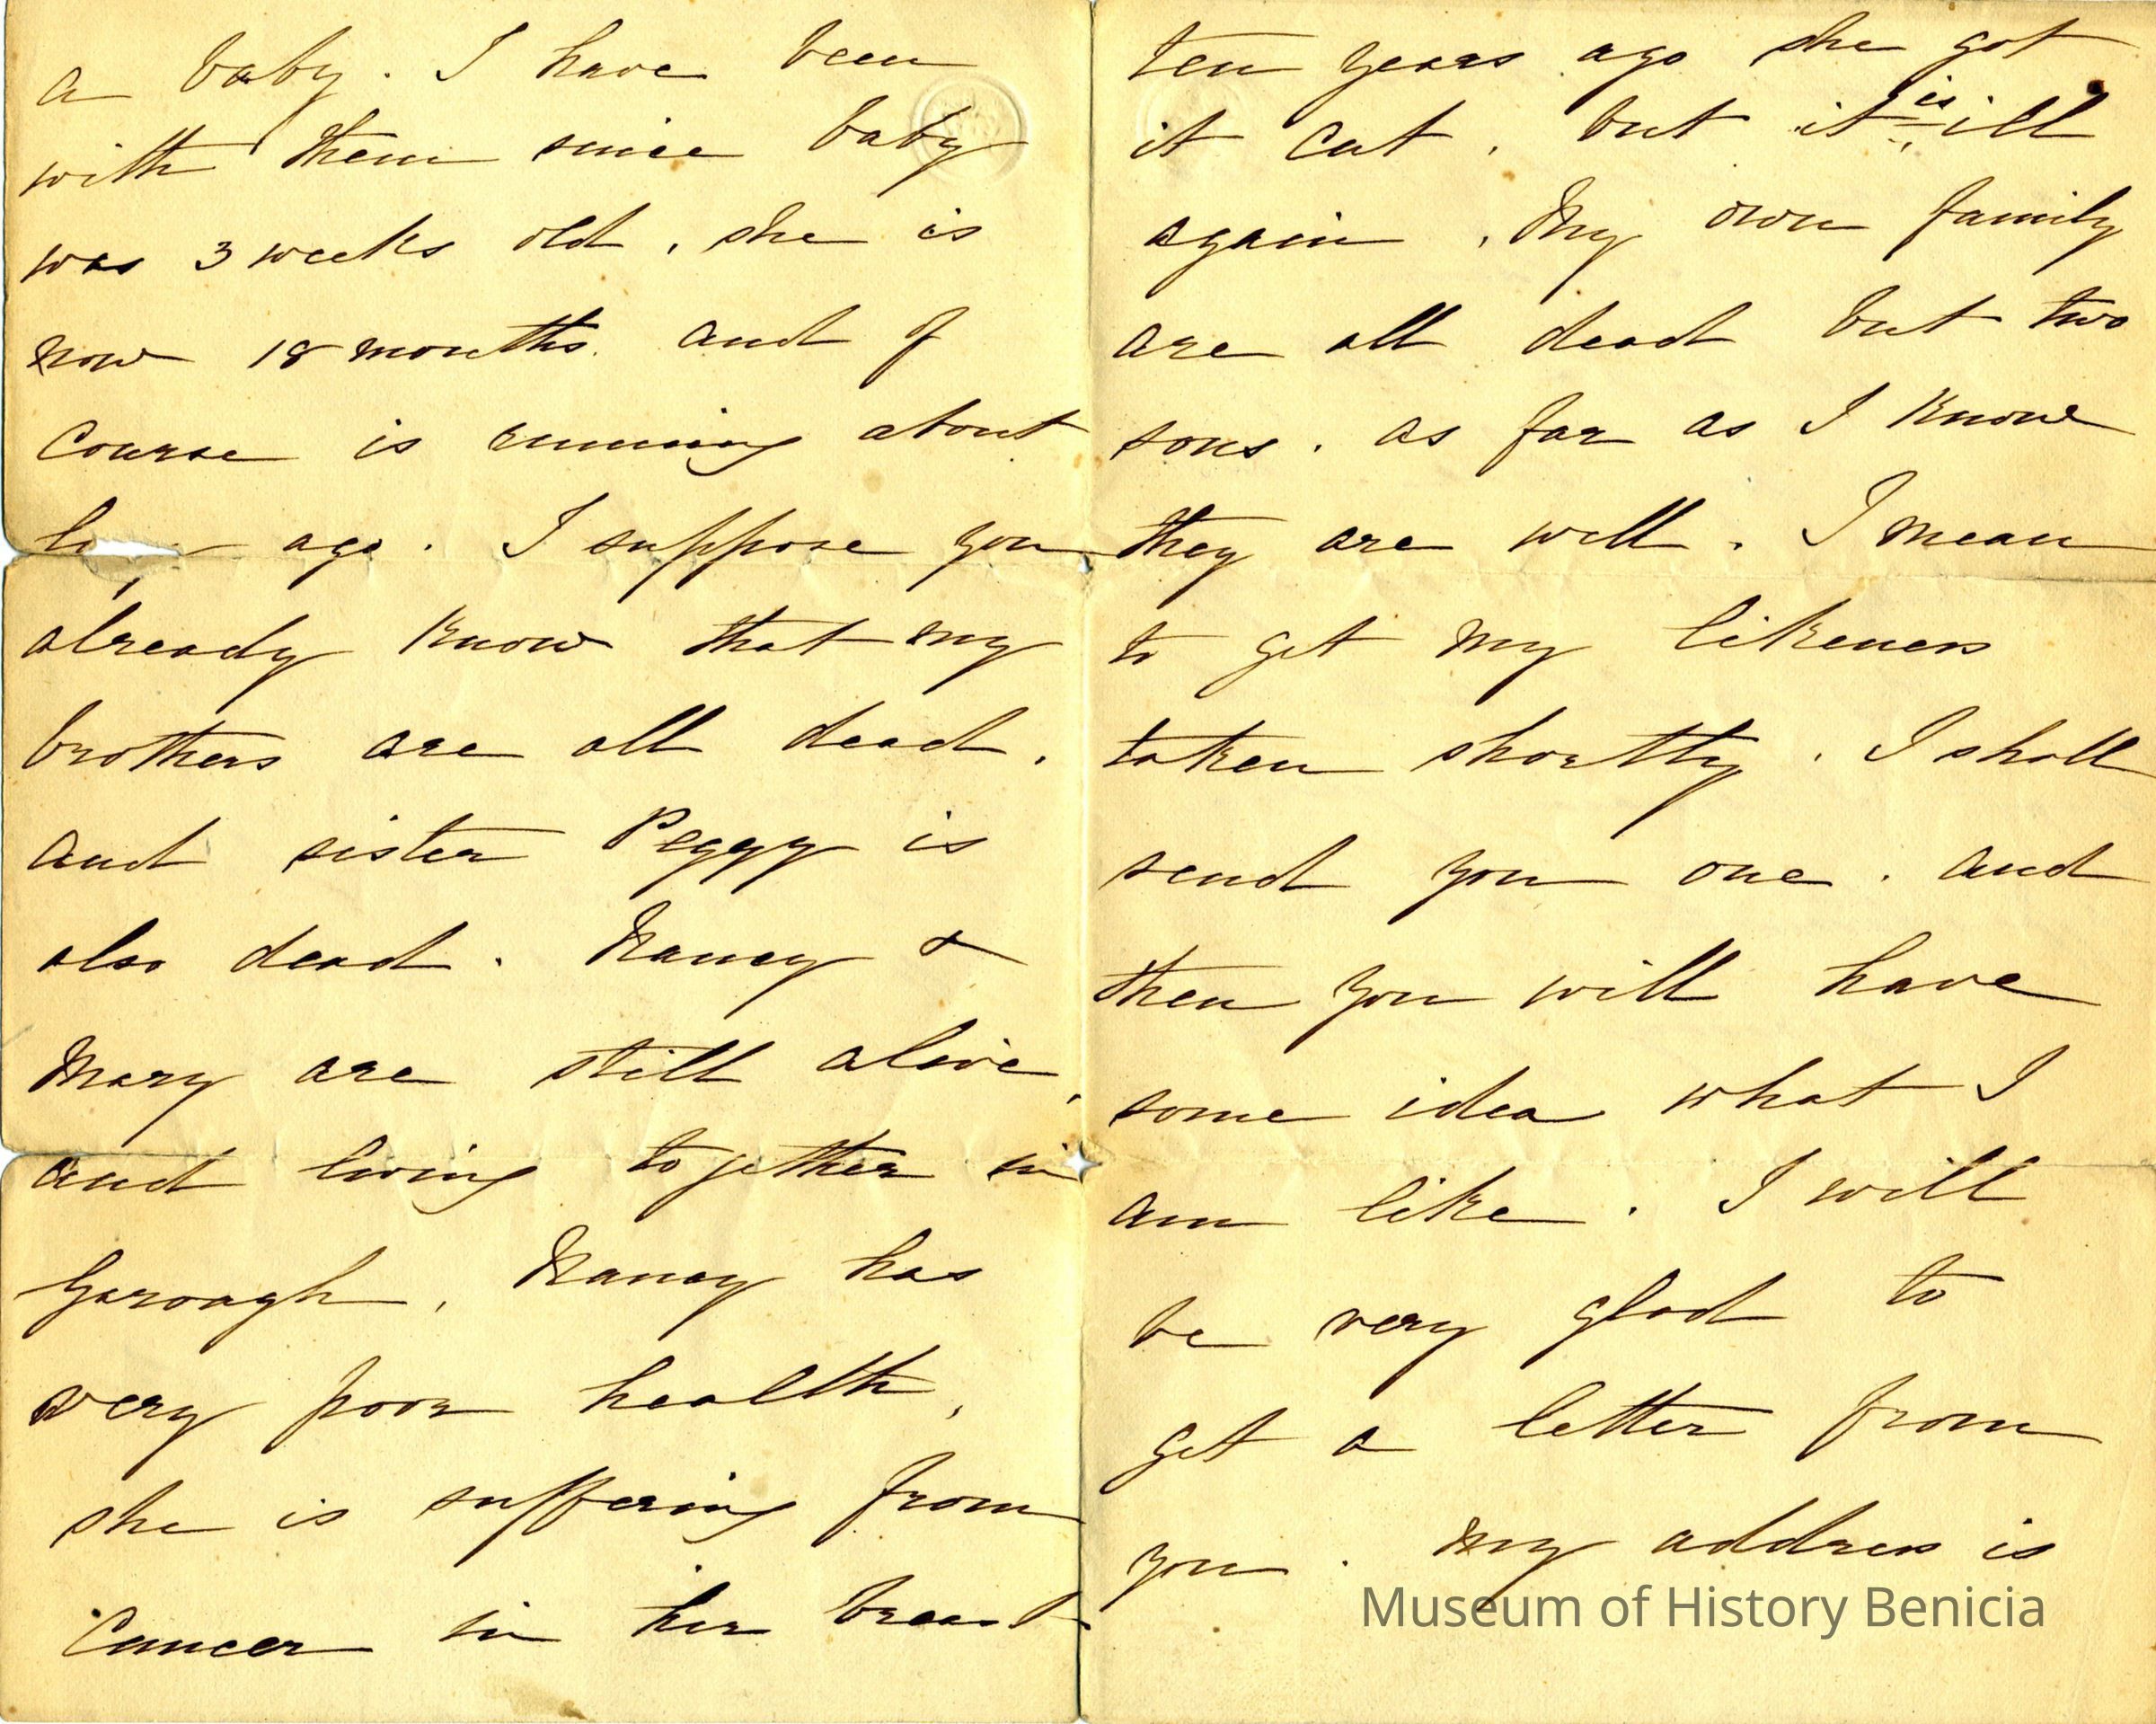 a baby. I have been
with them since baby
was 3 weeks old, she is
now 18 months. and of
course is running about
ago. I suppose you
already know that my
brothers are all dead,
and sister Peggy is
also dead. Nancy &
Mary are still alive,
and living together in
Garvagh, Nancy has
very poor health,
she is suffering from
Cancer in her breast
ten years ago she got
it cut, but it is ill
again, My own family
are all dead but two
sons. as far as I know
they are well. I mean
to get my likeness
taken shortly. I shall
send you one. and
then you will have
some idea what I
am like. I will
be very glad to
get a letter from
you. My address is
Museum of History Benicia